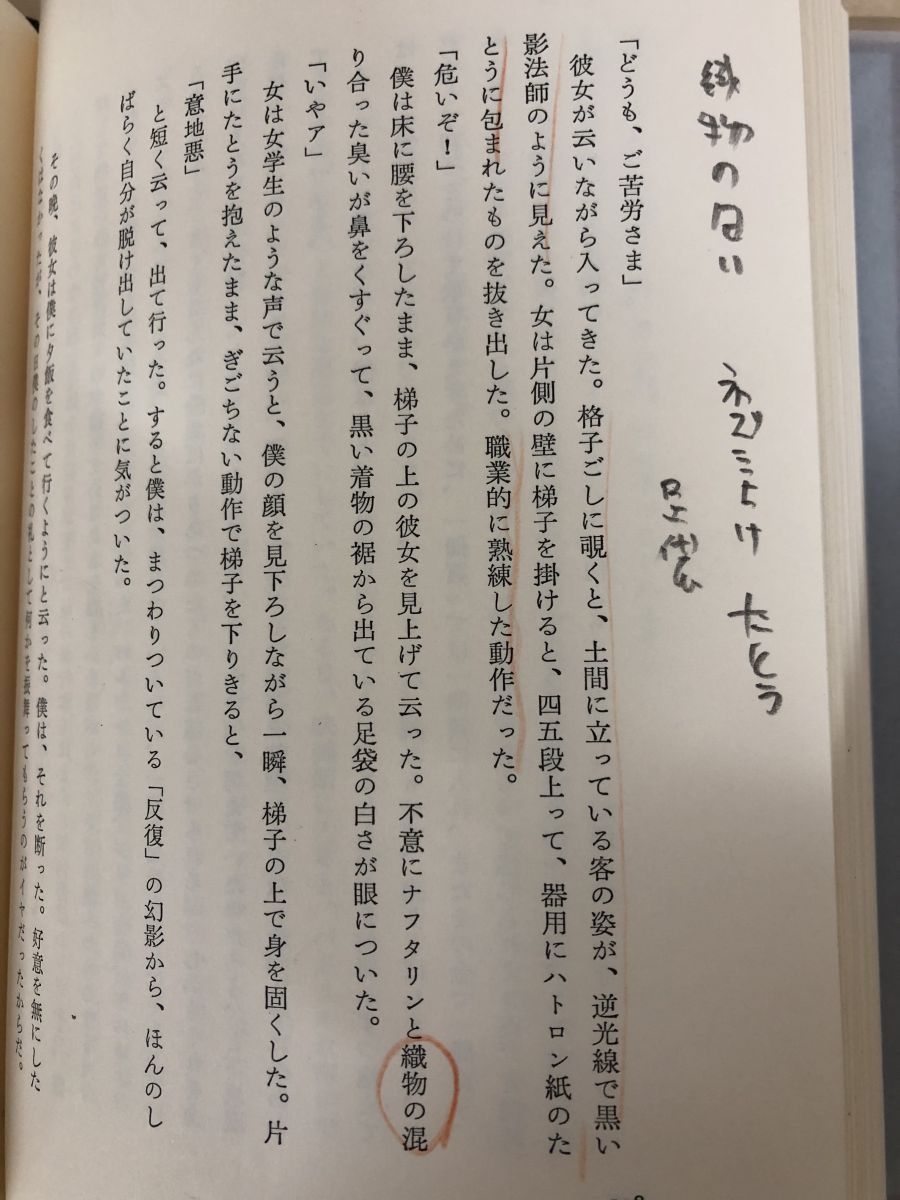 織物のない
たとう
「どうも、ご苦労さま」
彼女が云いながら入ってきた。格子ごしに覗くと、土間に立っている客の姿が、逆光線で黒い
影法師のように見えた。女は片側の壁に梯子を掛けると、四五段上って、器用にハトロン紙のた
とうに包まれたものを抜き出した。職業的に熟練した動作だった。
「危いぞ！」
僕は床に腰を下ろしたまま、梯子の上の彼女を見上げて云った。不意にナフタリンと織物の混
り合った臭いが鼻をくすぐって、黒い着物の裾から出ている足袋の白さが眼についた。
「いやア」
女は女学生のような声で云うと、僕の顔を見下ろしながら一瞬、梯子の上で身を固くした。片
手にたとうを抱えたまま、ぎごちない動作で梯子を下りきると、
「意地悪」
と短く云って、出て行った。すると僕は、まつわりついている「反復」の幻影から、ほんのし
ばらく自分が脱け出していたことに気がついた。
その晩、彼女は僕に夕飯を食べて行くようにと云った。僕は、それを断った。好意を無にした
くはなかったが、その日僕のしたことの礼として何かを振舞ってもらうのがイヤだったからだ。